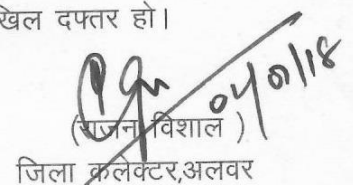 खिल दफ्तर हो।
04/01/18
(राजन विशाल )
जिला कलेक्टर,अलवर